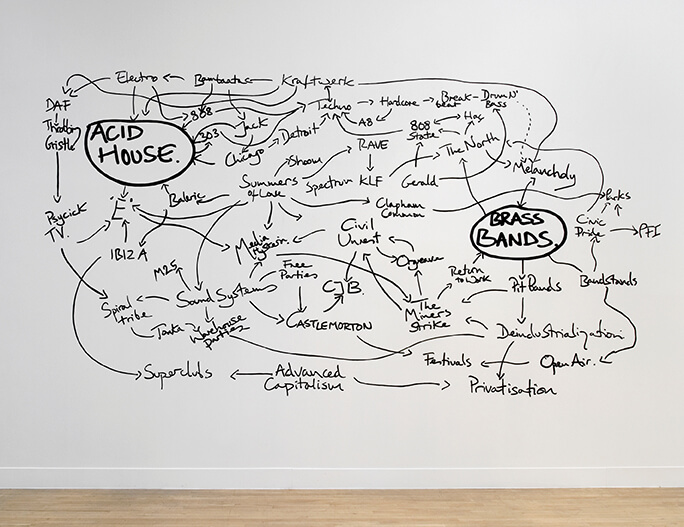 Electro
Bambaata
Kraftwerk
DAF
Throbbing
Gristle
808
303
Jack
Techno
Hardcore
Break-
beat
Drum N'
Bass
A8
ACID
HOUSE.
Chicago
Detroit
808
State
Has
The North
Shoom
RAVE
Melancholy
Summers
of Love
Spectrum
KLF
Gerald
Balaric
Clapham
Common
Parks
Psycick
TV.
'E'.
Civic
Pride
PFI
BRASS
BANDS.
IBIZA
Media
Hysteria.
Civil
Unrest
Orgreave
M25
Free
Parties
Return
to Work
Pit Bands
Bandstands
Spiral
tribe
Sound Systems
CJB.
The
Miners
Strike
Tonka
Warehouse
Parties
CASTLEMORTON
Deindustrialization
Festivals
Open Air.
Superclubs
Advanced
Capitalism
Privatisation